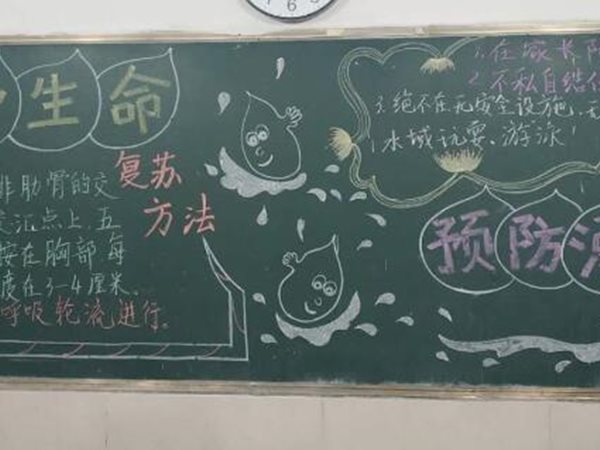 生命
复苏
方法
排肋骨的交
点上,五
按在胸部,每
度在3-4厘米。
呼吸轮流进行。
1.在家长陪
2.不私自结伴
3.绝不在无安全设施、无
水域玩耍、游泳!
预防溺